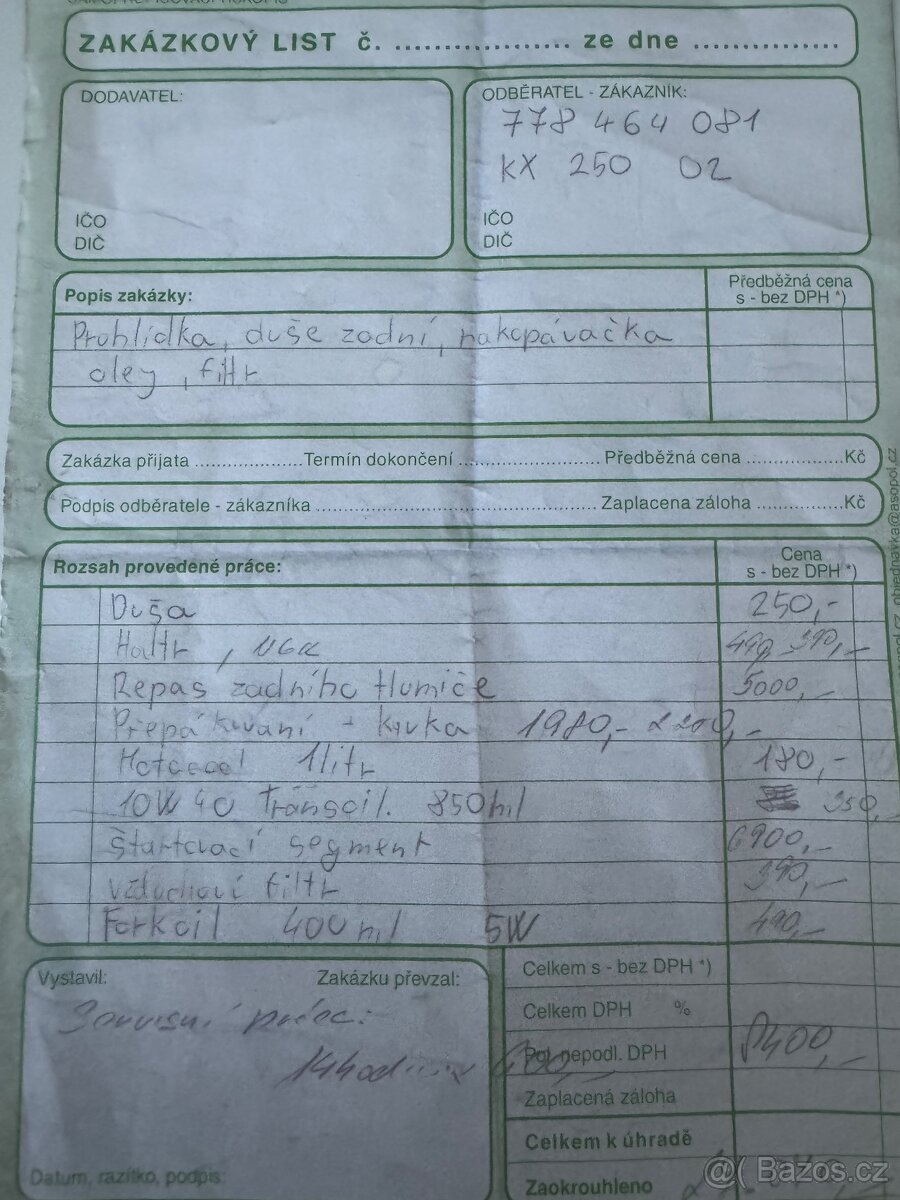 ZAKÁZKOVÝ LIST č. .................... ze dne ..................
DODAVATEL:
IČO
DIČ
ODBĚRATEL - ZÁKAZNÍK:
778 464 081
KX 250 02
IČO
DIČ
Popis zakázky:
Předběžná cena
s - bez DPH *)
Prohlídka, duše zadní, nakopávačka
oley, filtr
Zakázka přijata ..................... Termín dokončení ........................... Předběžná cena .................. Kč
Podpis odběratele - zákazníka ....................................................... Zaplacena záloha ................ Kč
objednavka@asopol.cz
Rozsah provedené práce:
Cena
s - bez DPH *)
Duša 250,-
Haltr, 390,-
Repas zadního tlumiče 5000,-
Přepákování - kyvka 1980,- 2200,-
1litr 180,-
10W 40 Transoil. 850ml 350,
štartovací segment 6900,-
vzduchoví filtr 390,-
Forkoil 400ml 5W 490,-
Vystavil: Zakázku převzal:
Servisní práce:
14hodin
Datum, razítko, podpis:
Celkem s - bez DPH *)
Celkem DPH %
Pol. nepodl. DPH 8400,-
Zaplacená záloha
Celkem k úhradě
Zaokrouhleno
@( Bazos.cz